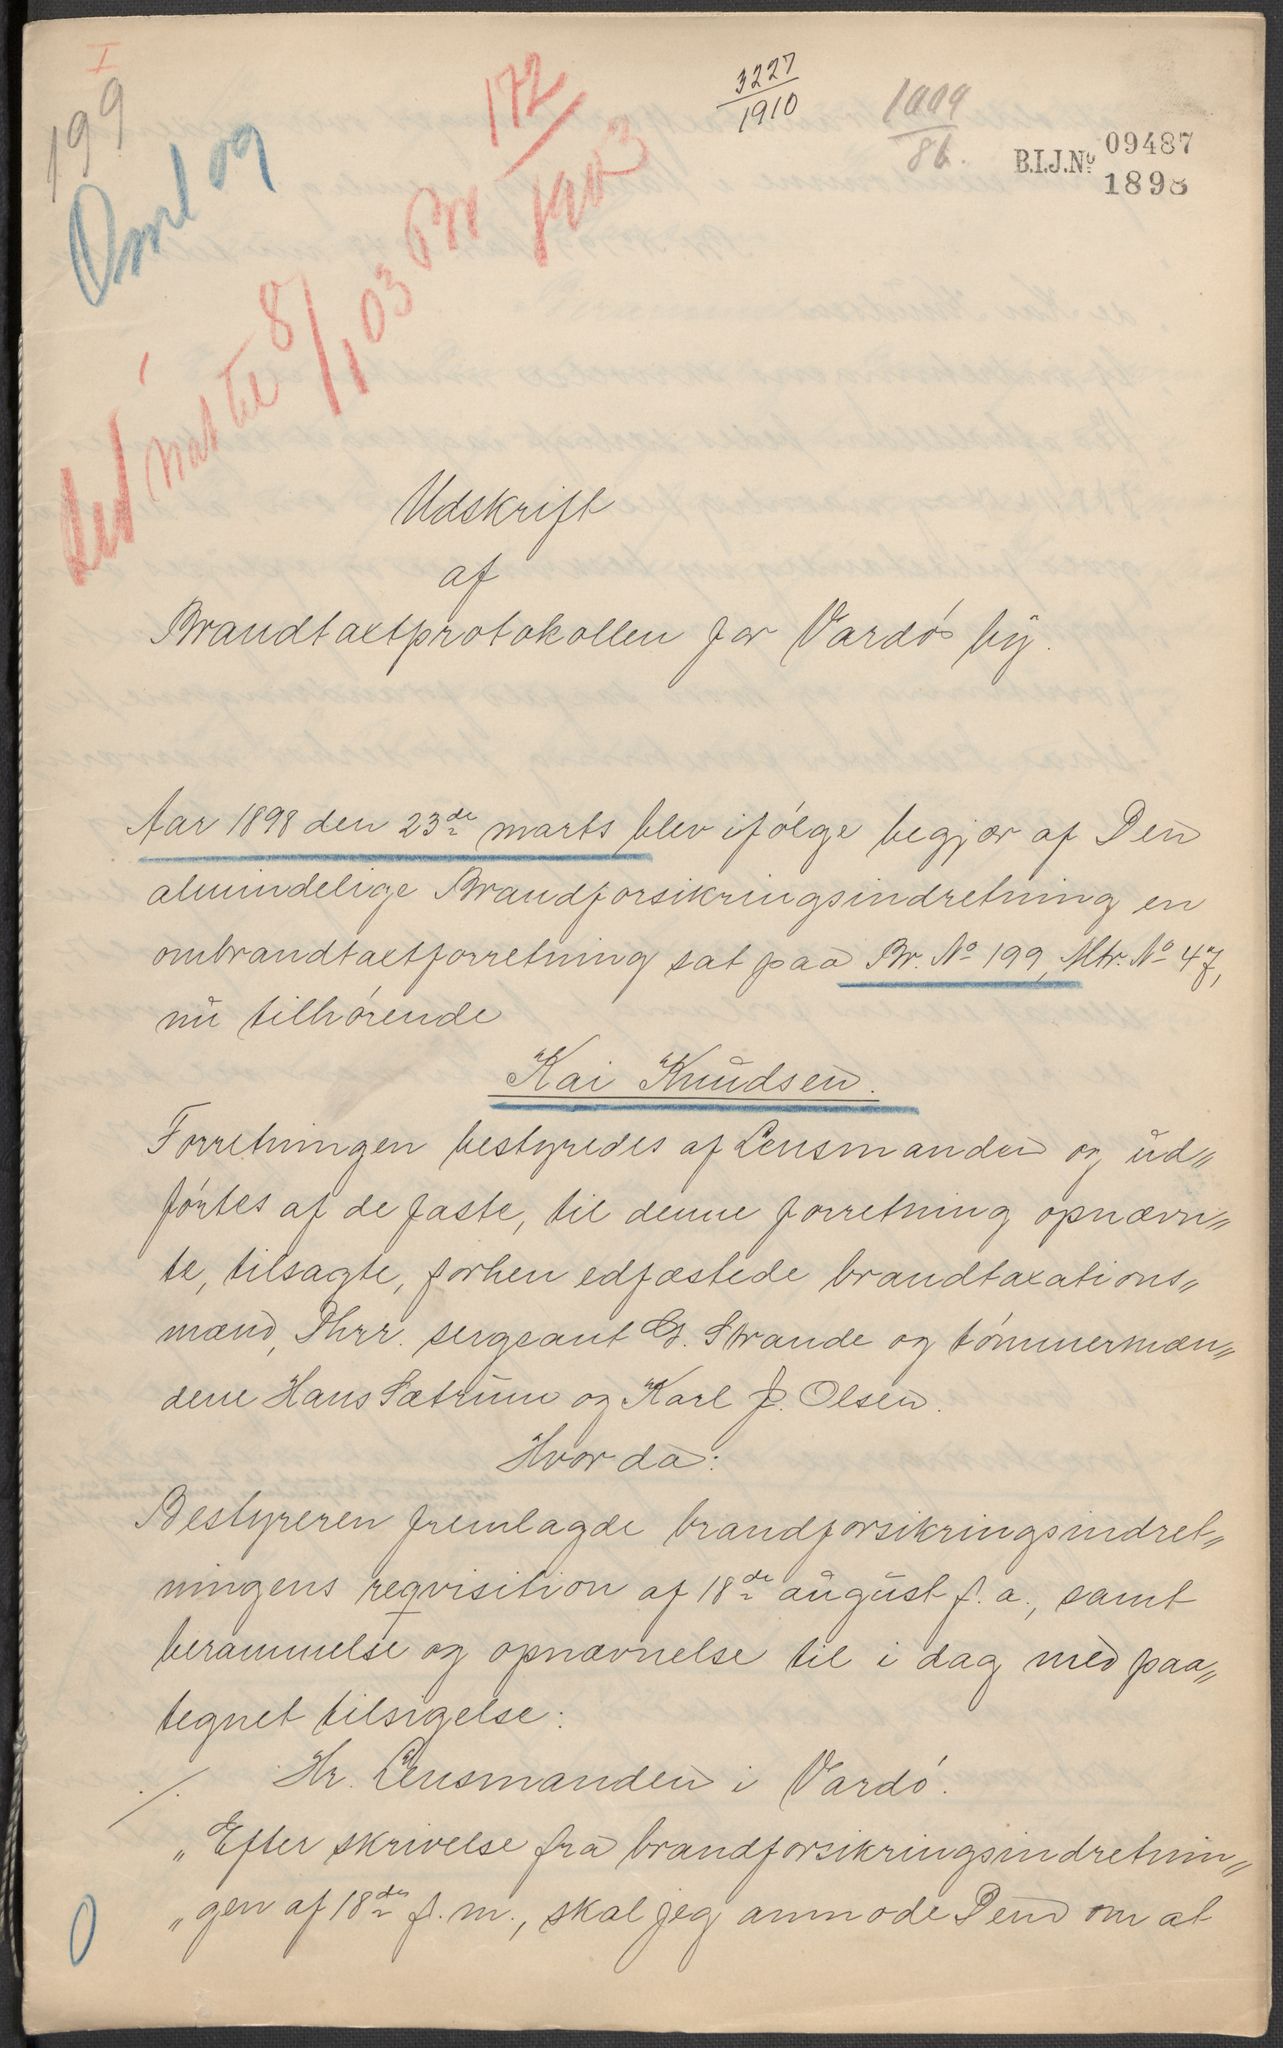 I
199
Oml og
172
1903
3227
1910
1009
86.
B.I.J.No 09487
1898
8/1 03
Udskrift
af
Brandtaxtprotokollen for Vardø by.
Aar 1898 den 23de marts blev ifølge begjær af Den
almindelige Brandforsikringsindretning en
ombrandtaxtforretning sat paa Br. No 199, Mtr. No 47,
nu tilhørende
Kai Knudsen.
Forretningen bestyredes af Lensmanden og ud„
førtes af de faste, til denne forretning opnævn„
te, tilsagte, forhen edfæstede brandtaxations„
mænd, Dhrr. sergeant G. Strande og tømmermæn„
dene Hans Sætrum og Karl J. Olsen.
Hvorda:
Bestyreren fremlagde brandforsikringsindret„
ningens reqvisition af 18de august f. a., samt
berammelse og opnævnelse til i dag med paa„
tegnet tilsigelse:
./. Hr. Lensmanden i Vardø.
„Efter skrivelse fra brandforsikringsindretnin„
„gen af 18de f. m., skal jeg anmode Dem om at
0